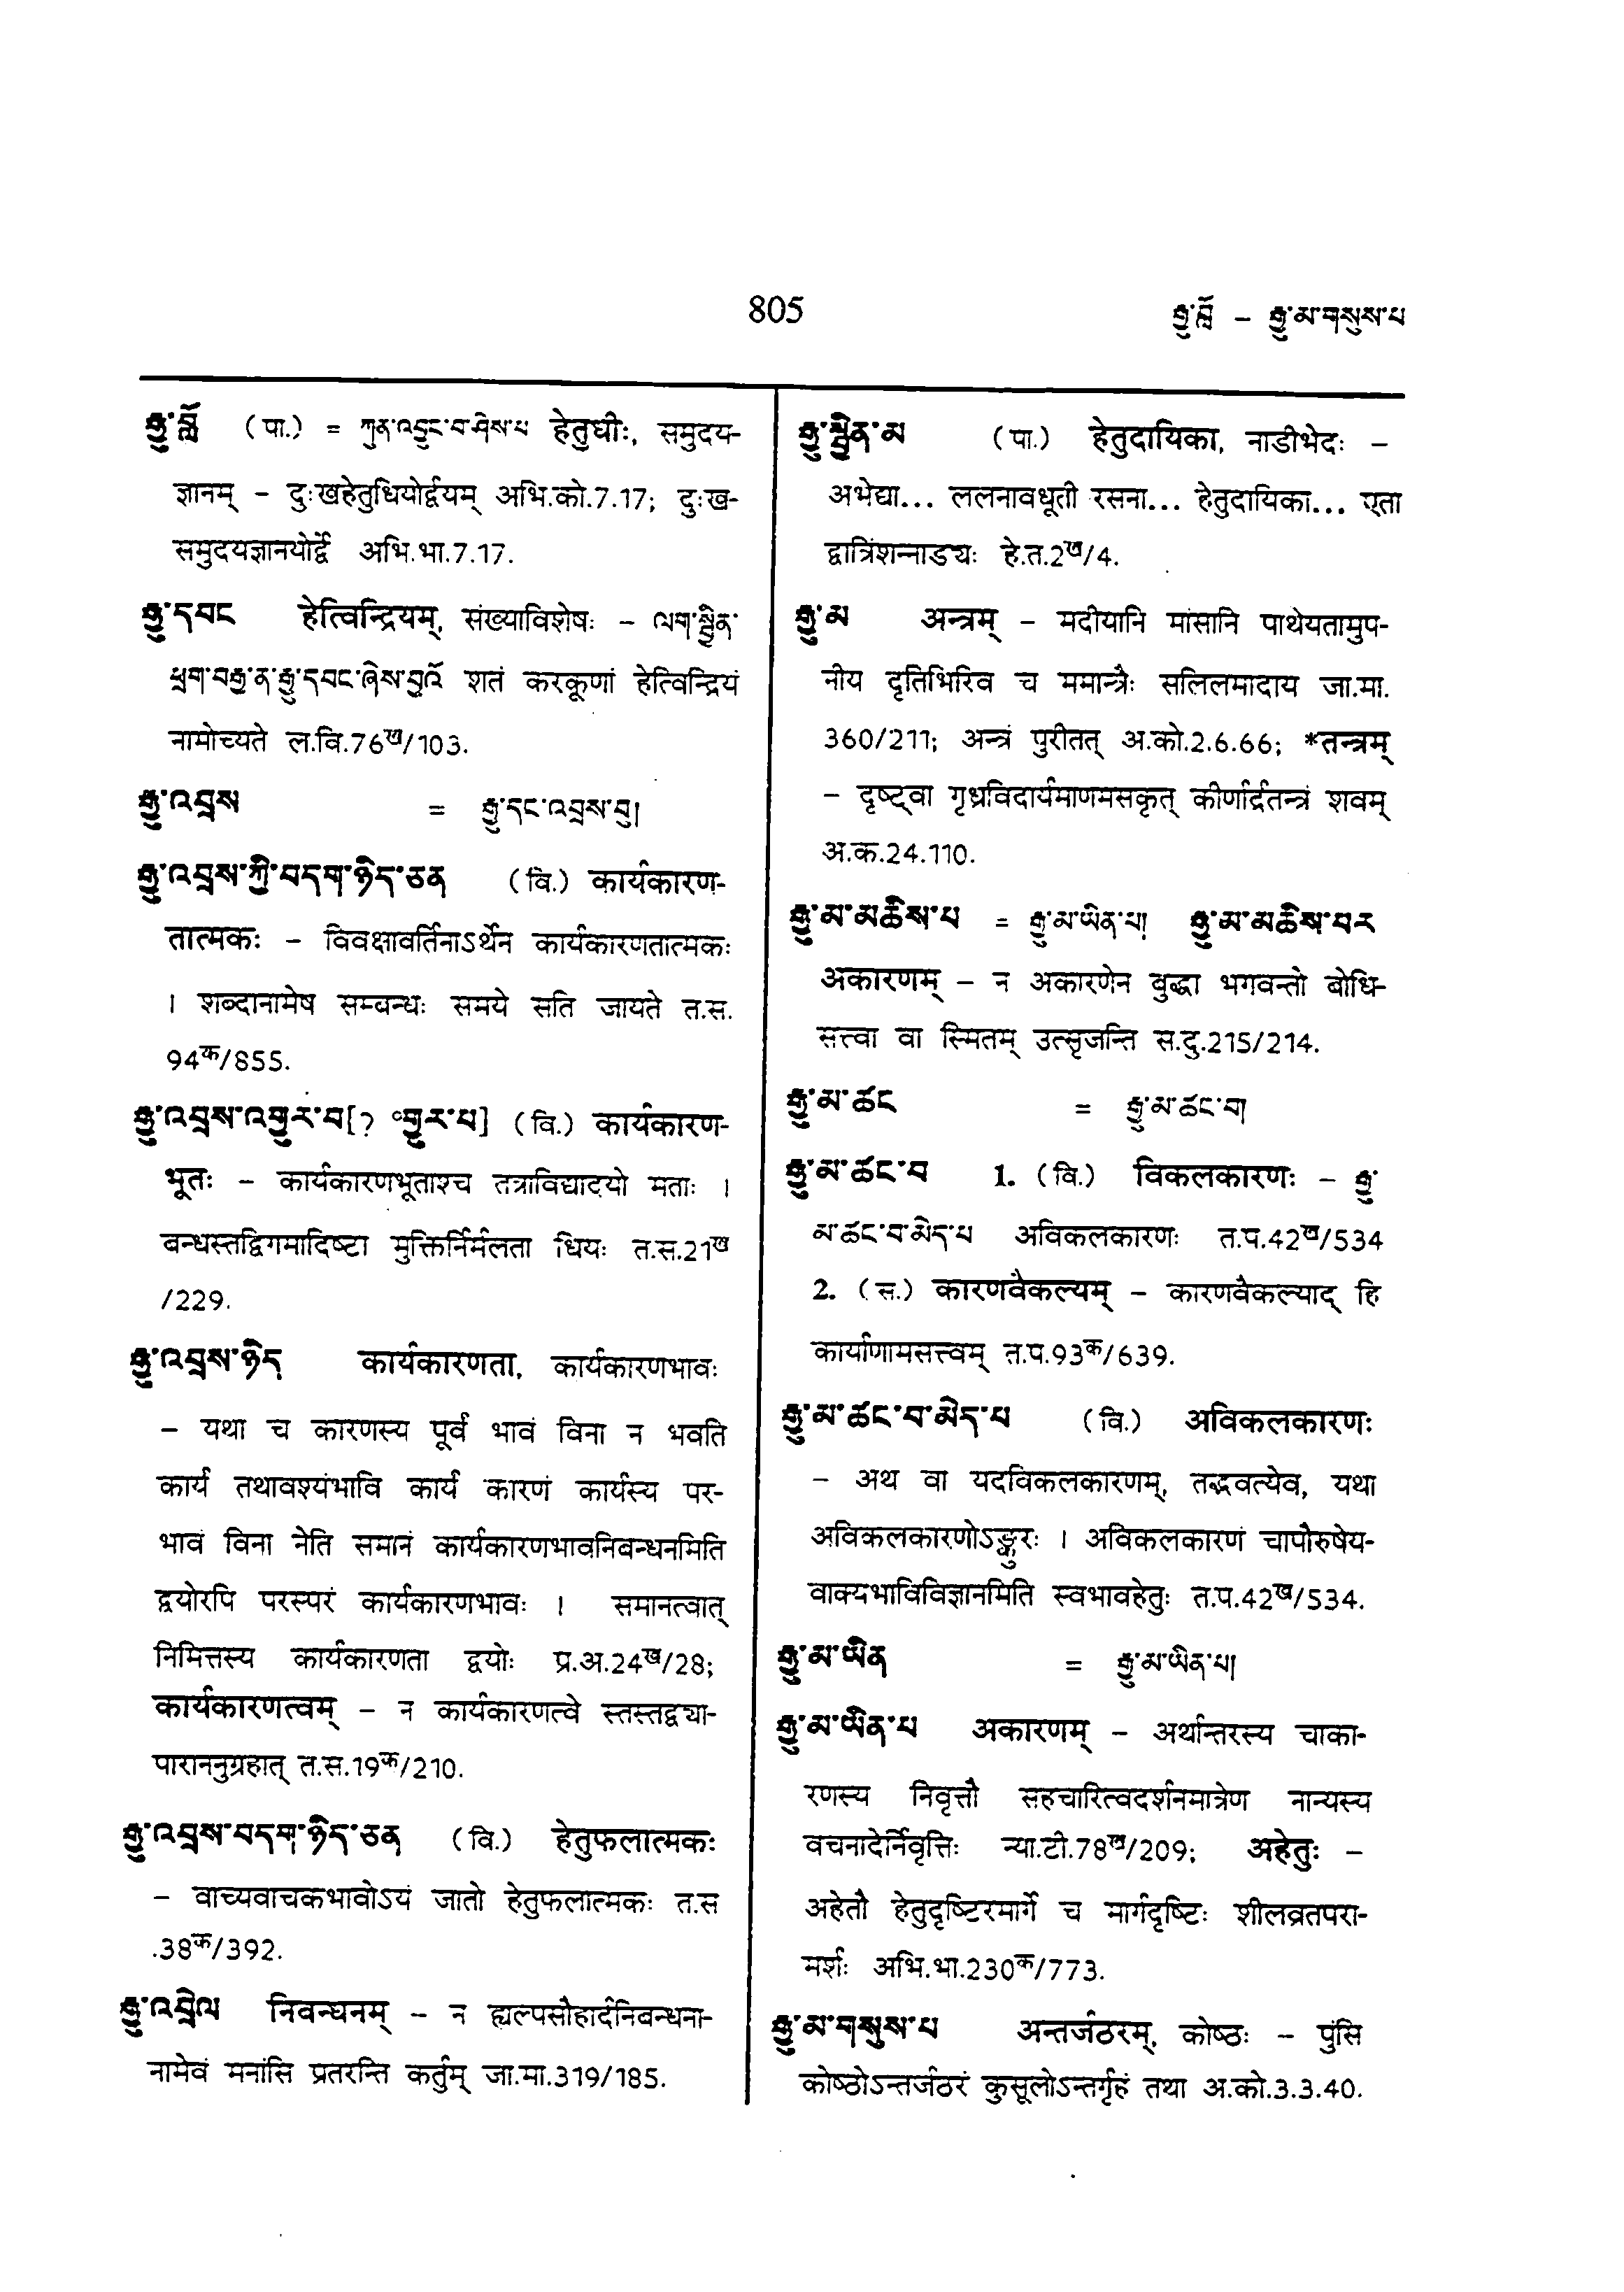 805
རྒྱུ་བློ – རྒྱུ་མ་གསུས་པ
རྒྱུ་བློ (पा.) = ཀུན་འབྱུང་བ་ཤེས་པ हेतुधीः, समुदय-
ज्ञानम् – दुःखहेतुधियोर्द्वयम् अभि.को.7.17; दुःख-
समुदयज्ञानयोर्द्वे अभि.भा.7.17.
རྒྱུ་དབང हेत्विन्द्रियम्, संख्याविशेषः – ལག་སྦྱིན་
ཕྲག་བརྒྱ་ན་རྒྱུ་དབང་ཞེས་བྱའོ शतं करकूणां हेत्विन्द्रियं
नामोच्यते ल.वि.76ख/103.
རྒྱུ་འབྲས = རྒྱུ་དང་འབྲས་བུ།
རྒྱུ་འབྲས་ཀྱི་བདག་ཉིད་ཅན (वि.) कार्यकारण-
तात्मकः – विवक्षावर्तिनाऽर्थेन कार्यकारणतात्मकः
। शब्दानामेष सम्बन्धः समये सति जायते त.स.
94क/855.
རྒྱུ་འབྲས་འགྱུར་བ[? °གྱུར་པ] (वि.) कार्यकारण-
भूतः – कार्यकारणभूताश्च तत्राविद्यादयो मताः ।
बन्धस्तद्विगमादिष्टा मुक्तिर्निर्मलता धियः त.स.21ख
/229.
རྒྱུ་འབྲས་ཉིད कार्यकारणता, कार्यकारणभावः
– यथा च कारणस्य पूर्व भावं विना न भवति
कार्य तथावश्यंभावि कार्य कारणं कार्यस्य पर-
भावं विना नेति समानं कार्यकारणभावनिबन्धनमिति
द्वयोरपि परस्परं कार्यकारणभावः । समानत्वात्
निमित्तस्य कार्यकारणता द्वयोः प्र.अ.24ख/28;
कार्यकारणत्वम् – न कार्यकारणत्वे स्तस्तद्व्या-
पाराननुग्रहात् त.स.19क/210.
རྒྱུ་འབྲས་བདག་ཉིད་ཅན (वि.) हेतुफलात्मकः
– वाच्यवाचकभावोऽयं जातो हेतुफलात्मकः त.स
.38क/392.
རྒྱུ་འབྲེལ निबन्धनम् – न ह्यल्पसौहार्दनिबन्धना-
नामेवं मनांसि प्रतरन्ति कर्तुम् जा.मा.319/185.
རྒྱུ་སྦྱིན་མ (पा.) हेतुदायिका, नाडीभेदः –
अभेद्या... ललनावधूती रसना... हेतुदायिका... एता
द्वात्रिंशन्नाड्यः हे.त.2ख/4.
རྒྱུ་མ अन्त्रम् – मदीयानि मांसानि पाथेयतामुप-
नीय दृतिभिरिव च ममान्त्रैः सलिलमादाय जा.मा.
360/211; अन्त्रं पुरीतत् अ.को.2.6.66; *तन्त्रम्
– दृष्ट्वा गृध्रविदार्यमाणमसकृत् कीर्णार्द्रतन्त्रं शवम्
अ.क.24.110.
རྒྱུ་མ་མཆིས་པ = རྒྱུ་མ་ཡིན་པ། རྒྱུ་མ་མཆིས་པར
अकारणम् – न अकारणेन बुद्धा भगवन्तो बोधि-
सत्त्वा वा स्मितम् उत्सृजन्ति स.दु.215/214.
རྒྱུ་མ་ཚང = རྒྱུ་མ་ཚང་བ།
རྒྱུ་མ་ཚང་བ 1. (वि.) विकलकारणः – རྒྱུ་
མ་ཚང་བ་མེད་པ अविकलकारणः त.प.42ख/534
2. (स.) कारणवैकल्यम् – कारणवैकल्याद् हि
कार्याणामसत्त्वम् त.प.93क/639.
རྒྱུ་མ་ཚང་བ་མེད་པ (वि.) अविकलकारणः
– अथ वा यदविकलकारणम्, तद्भवत्येव, यथा
अविकलकारणोऽङ्कुरः । अविकलकारणं चापौरुषेय-
वाक्यभाविविज्ञानमिति स्वभावहेतुः त.प.42ख/534.
རྒྱུ་མ་ཡིན = རྒྱུ་མ་ཡིན་པ།
རྒྱུ་མ་ཡིན་པ अकारणम् – अर्थान्तरस्य चाका-
रणस्य निवृत्तौ सहचारित्वदर्शनमात्रेण नान्यस्य
वचनादेर्निवृत्तिः न्या.टी.78ख/209; अहेतुः –
अहेतौ हेतुदृष्टिरमार्गे च मार्गदृष्टिः शीलव्रतपरा-
मर्शः अभि.भा.230क/773.
རྒྱུ་མ་གསུས་པ अन्तर्जठरम्, कोष्ठः – पुंसि
कोष्ठोऽन्तर्जठरं कुसूलोऽन्तर्गृहं तथा अ.को.3.3.40.